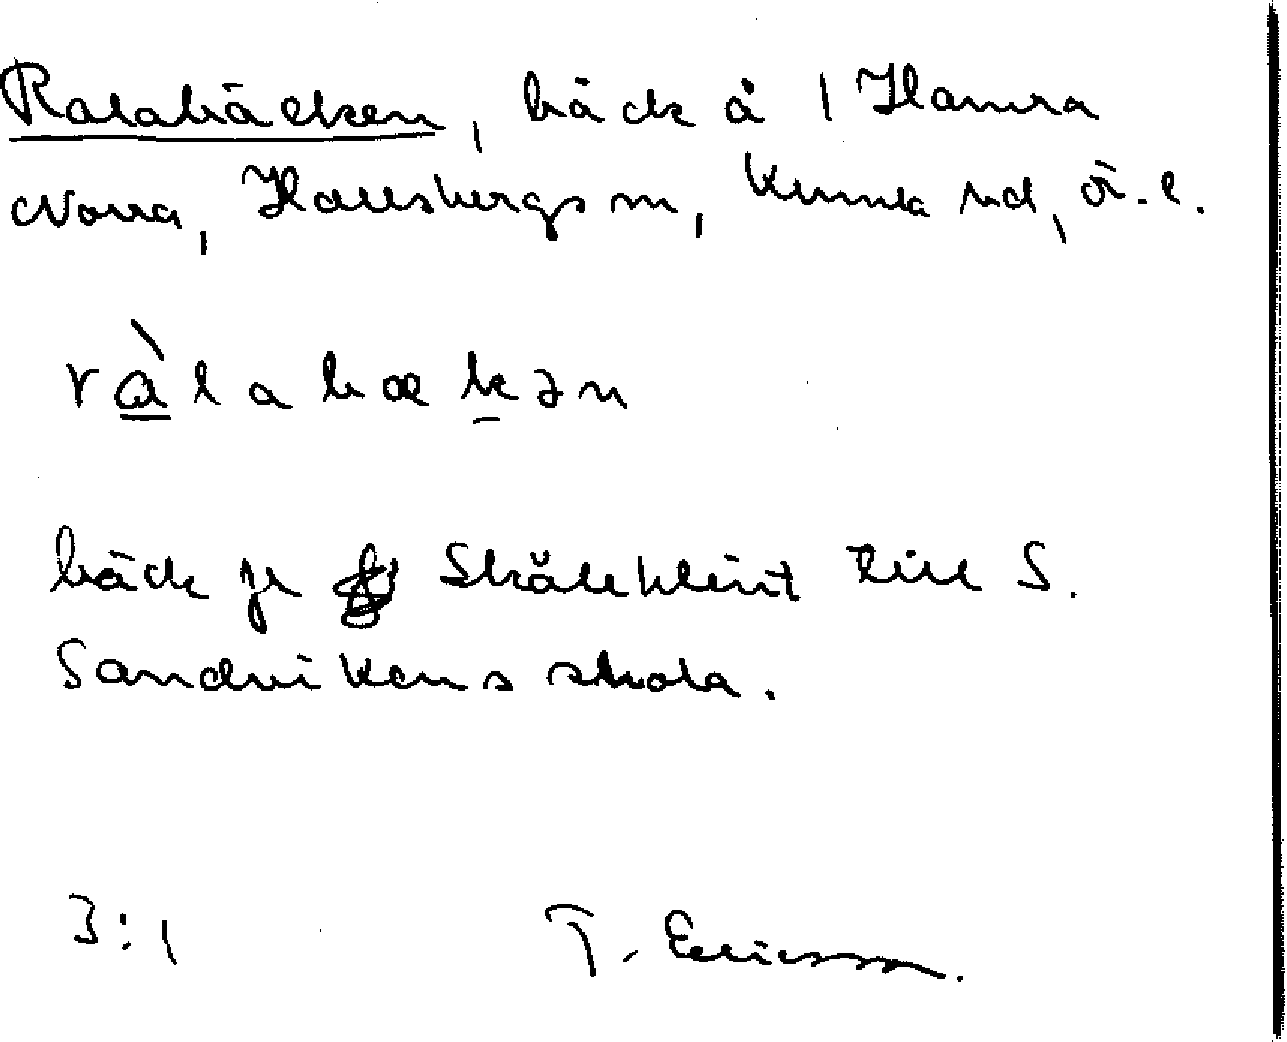 Ralabäcken, bäck å 1 Hamra
Norra, Hallsbergs sn, Kumla hd, Ö. l.
ràlabækən
bäck fr Skåleklint till S.
Sandvikens skola.
3:1 T. Ericsson.